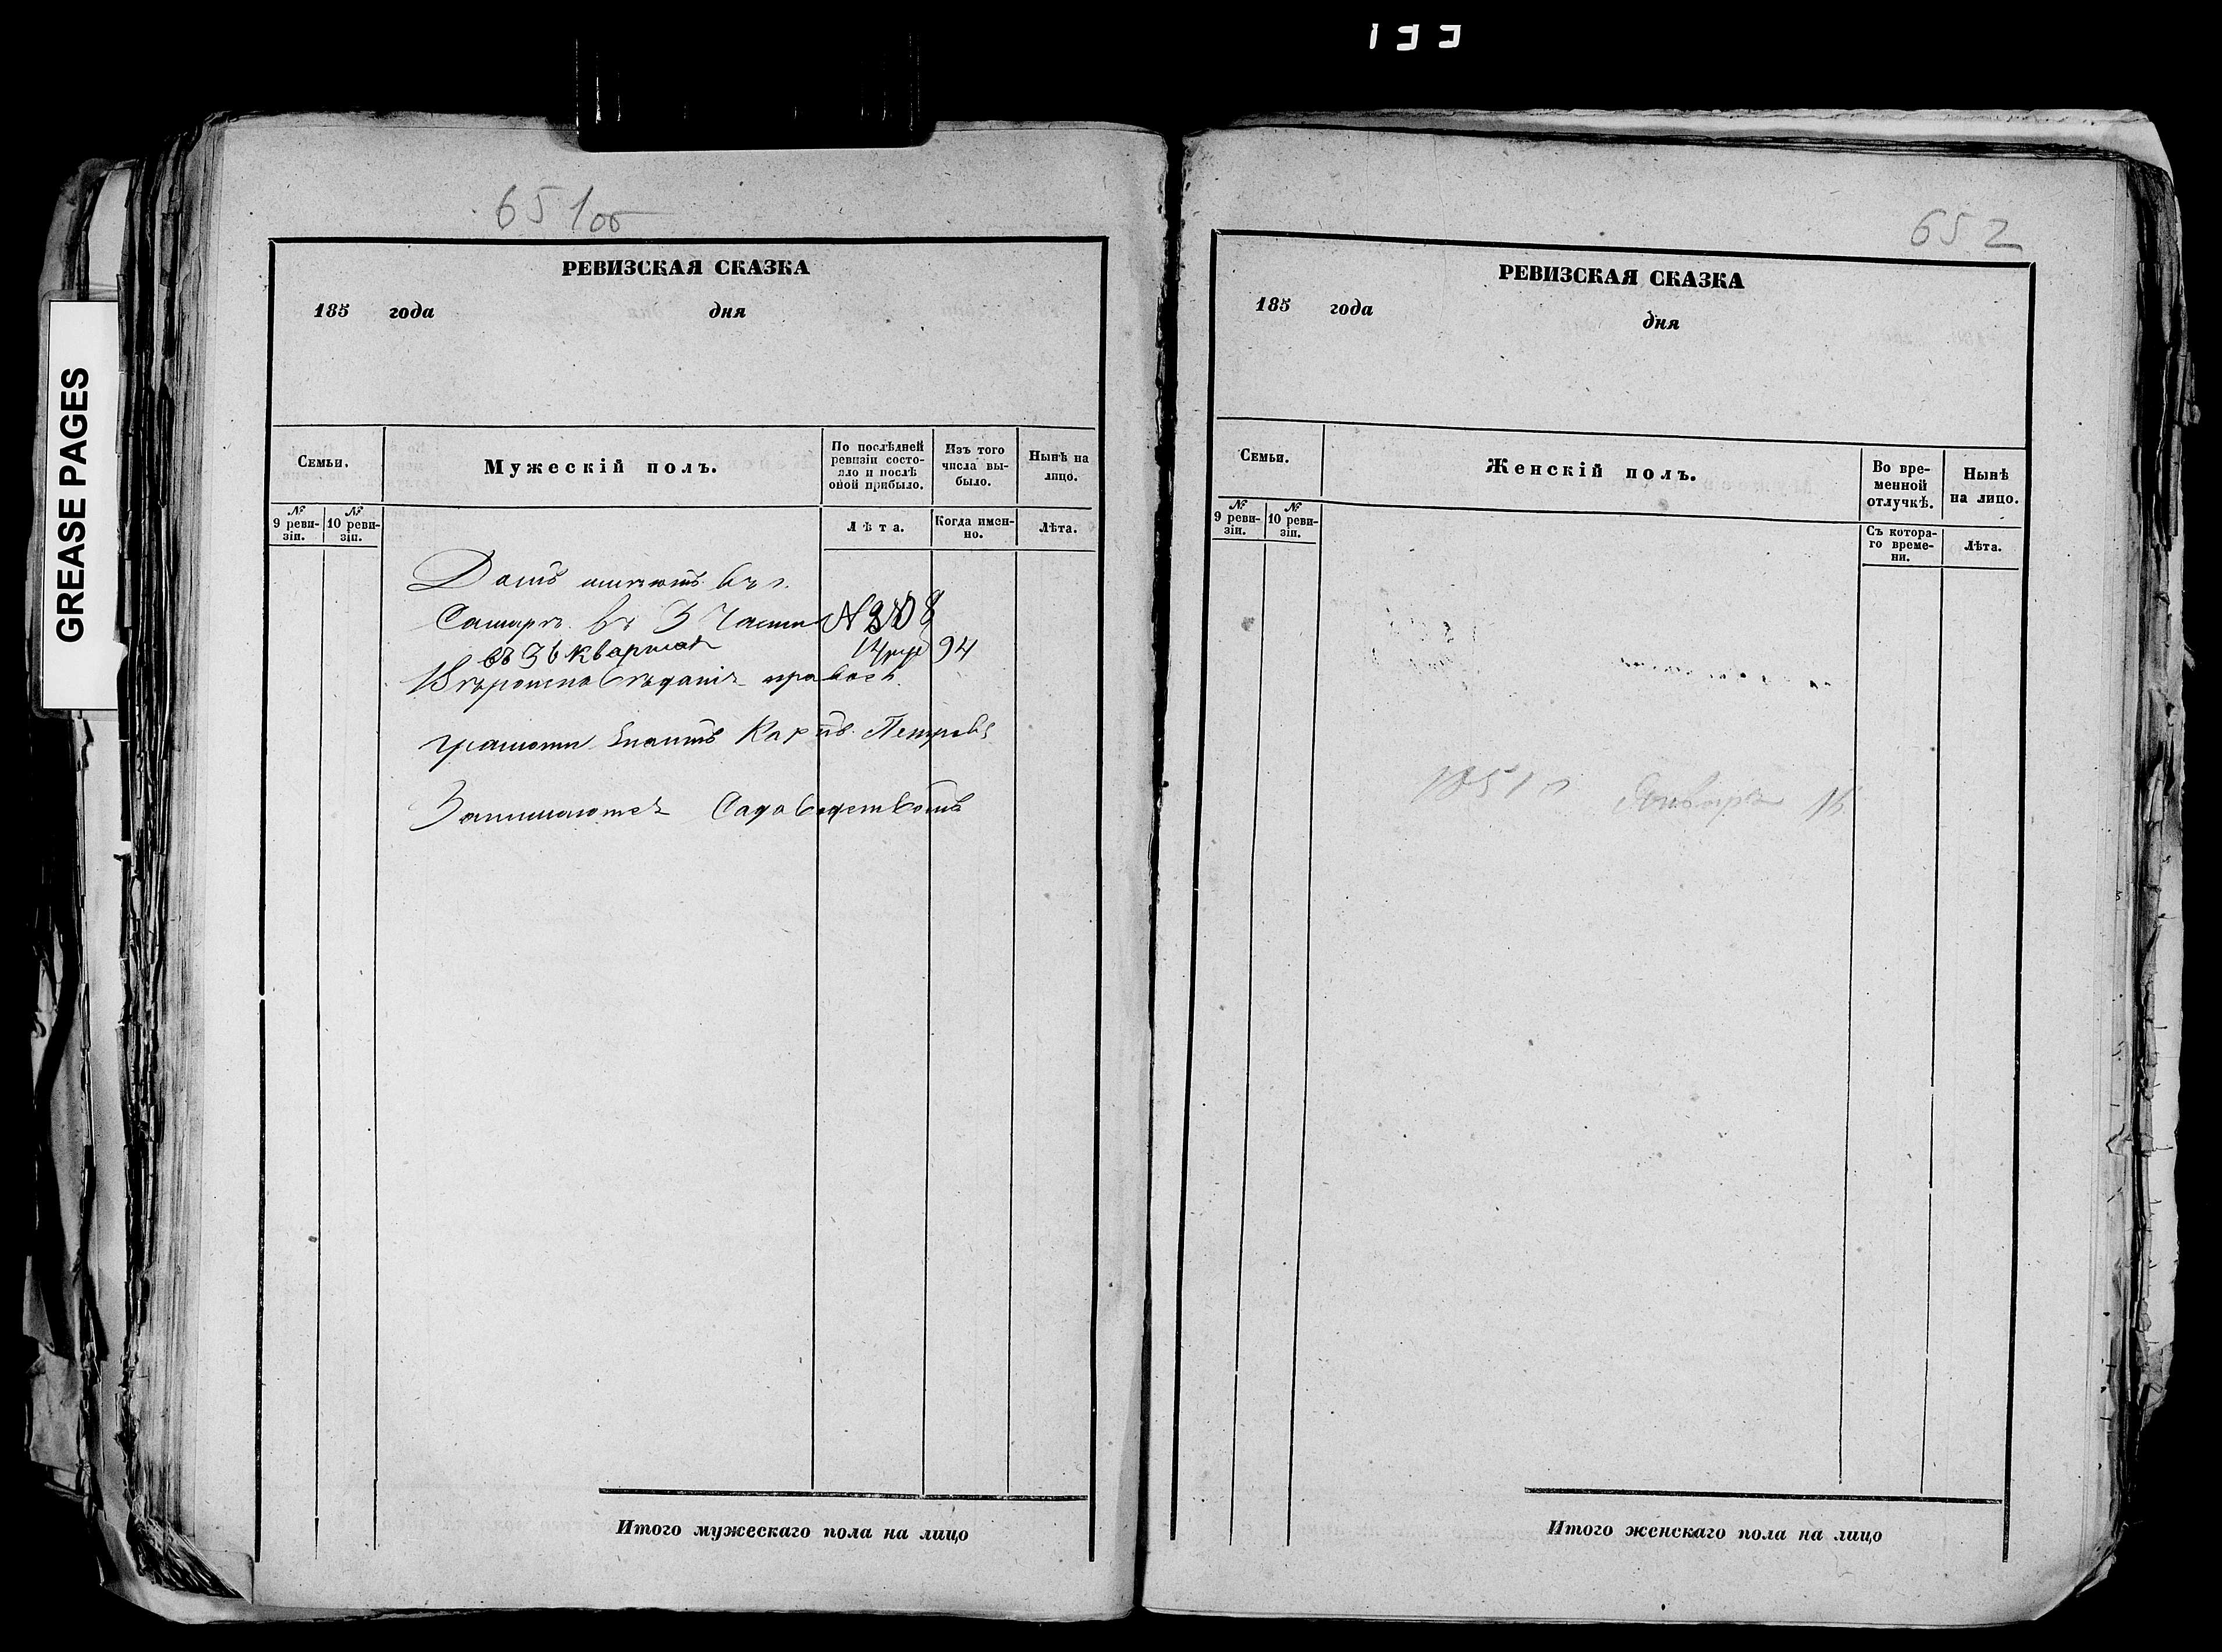 133
GREASE PAGES
651об
РЕВИЗСКАЯ СКАЗКА
185 года дня
Семьи.
Мужескій полъ.
По послѣдней ревизіи состояло и послѣ оной прибыло.
Изъ того числа выбыло.
Нынѣ на лицо.
№ 9 ревизіи.
№ 10 ревизіи.
Лѣта.
Когда именно.
Лѣта.
Домъ имѣютъ въ г.
Самарѣ въ 3 Части №
въ 36 кварталѣ 94
Вѣроисповѣданія правосл.
грамоти знаитъ Карпъ Петровъ
Занимаются Садоводствомъ
Итого мужескаго пола на лицо
652
РЕВИЗСКАЯ СКАЗКА
185 года дня
Семьи.
Женскій полъ.
Во временной отлучкѣ.
Нынѣ на лицо.
№ 9 ревизіи.
№ 10 ревизіи.
Съ котораго времени.
Лѣта.
Января
Итого женскаго пола на лицо